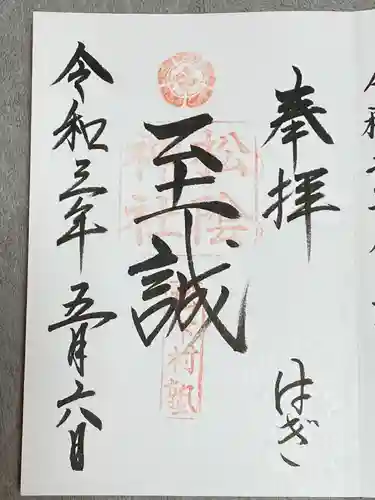 奉拝
はぎ
至誠
松陰
神社
松下村塾
令和三年五月六日